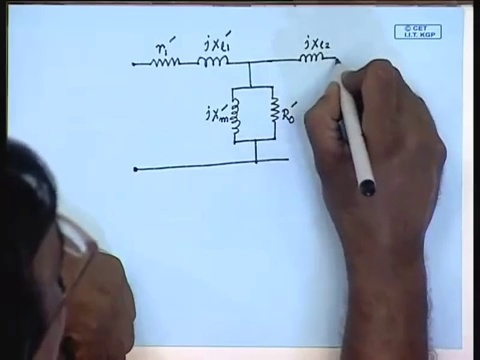 © CET
I.I.T. KGP
r₁′ jxℓ₁′ jxℓ₂
jx′m R₀′